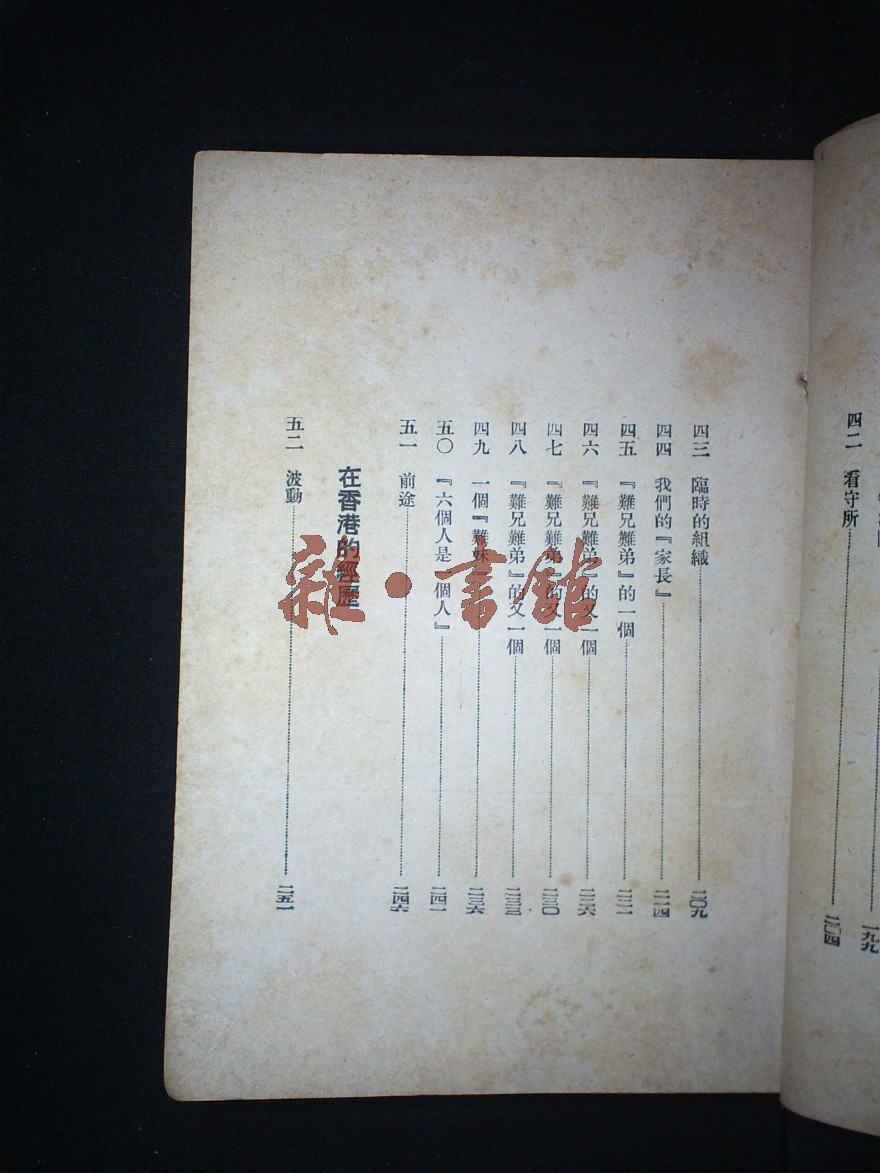 四二 看守所 二〇四
四三 臨時的組織 二〇九
四四 我們的『家長』 二一四
四五 『難兄難弟』的一個 二二一
四六 『難兄難弟』的又一個 二二六
四七 『難兄難弟』的又一個 二三〇
四八 『難兄難弟』的又一個 二三三
四九 一個『難妹』 二三六
五〇 『六個人是一個人』 二四一
五一 前途 二四六
在香港的經歷
五二 波動 二五一
一九九
雜·書館